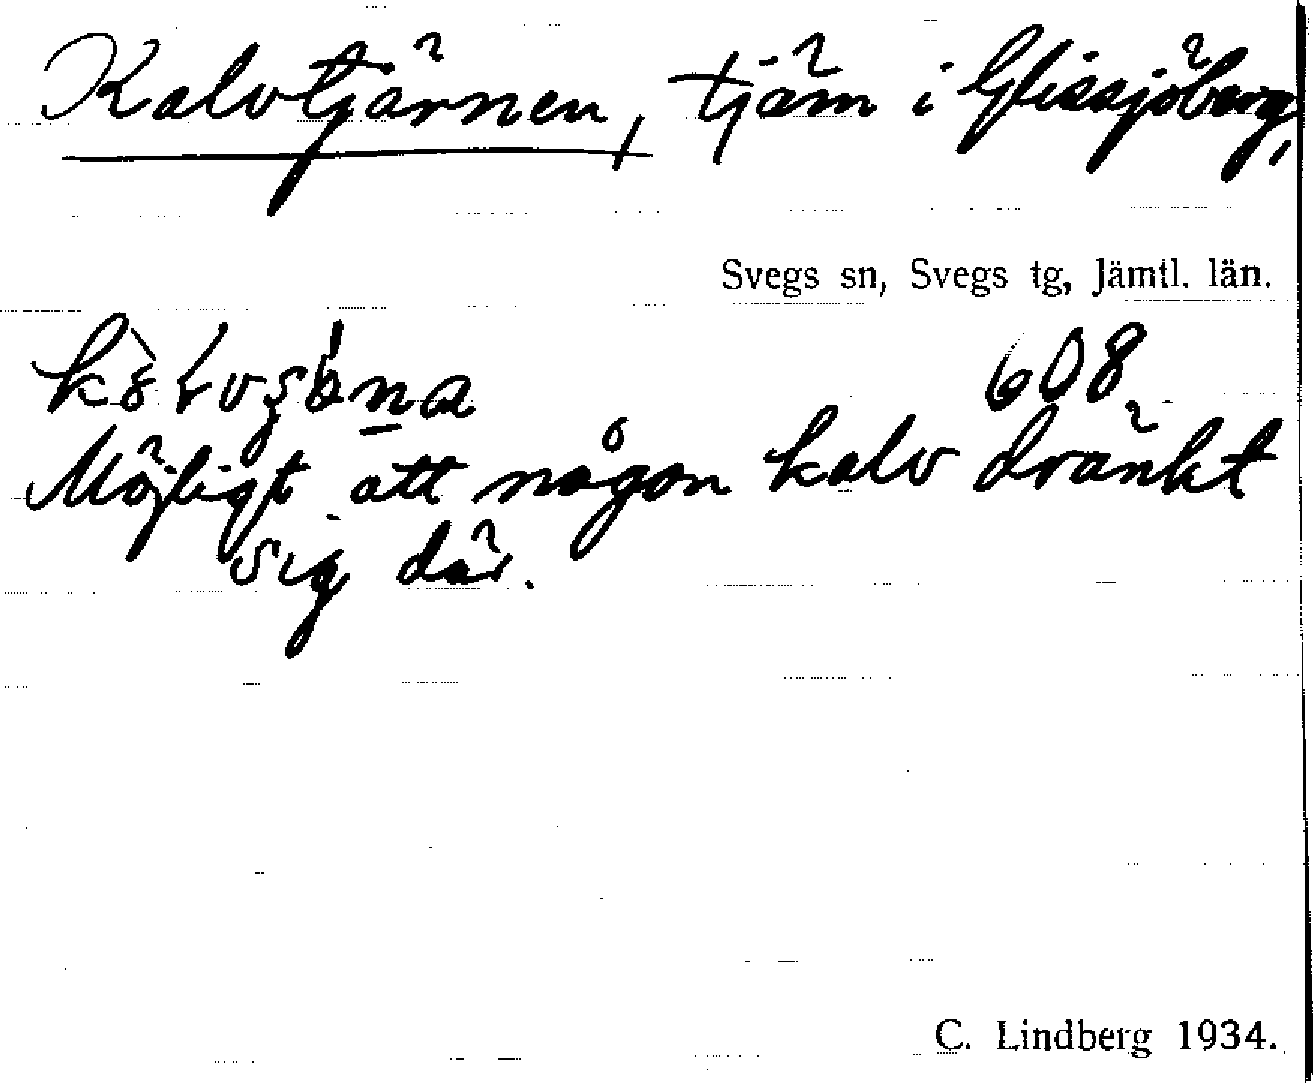 Kalvtjärnen, tjärn i Glissjöberg,
Svegs sn, Svegs tg, Jämtl. län.
608
Möjligt att någon kalv dränkt
sig där.
C. Lindberg 1934.